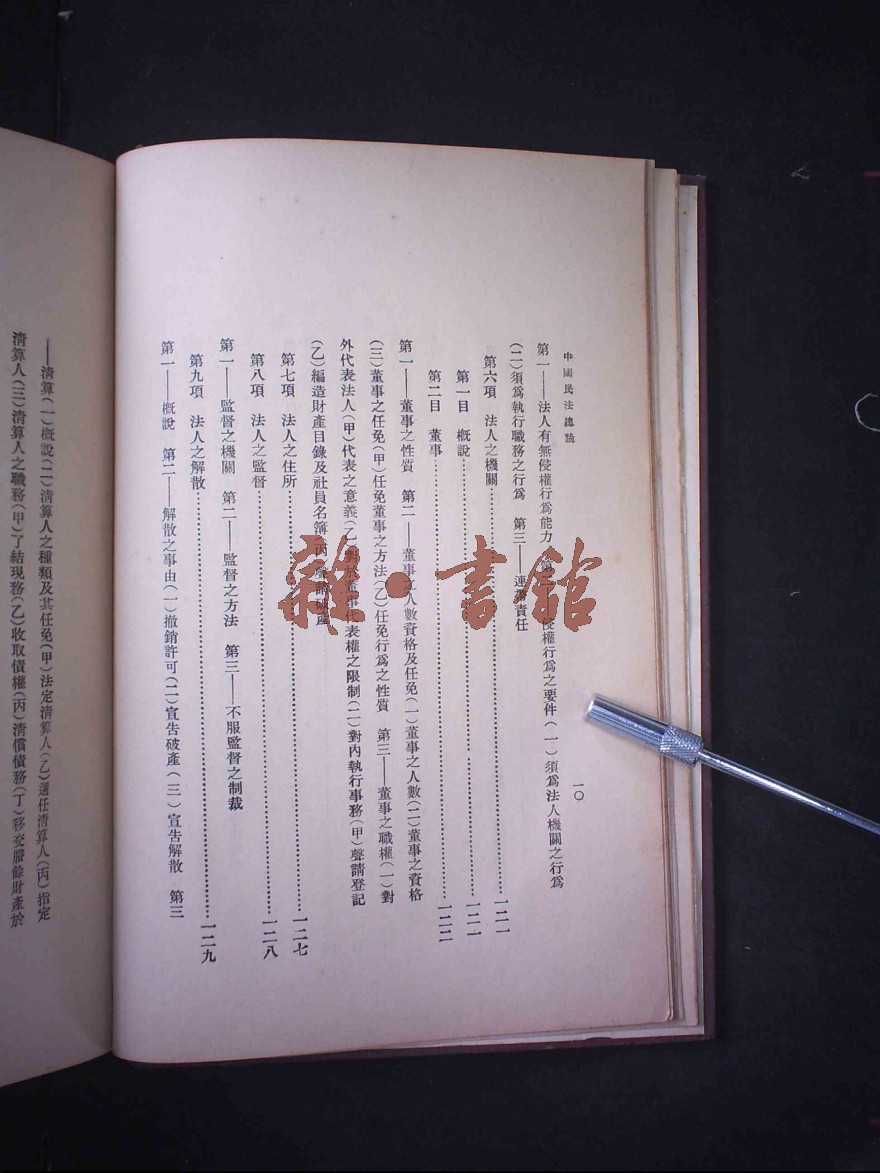 中國民法總論
一〇
第一——法人有無侵權行爲能力 第 侵權行爲之要件(一)須爲法人機關之行爲
(二)須爲執行職務之行爲 第三——連帶責任
第六項 法人之機關 一二一
第一目 概說 一二一
第二目 董事 一二二
第一——董事之性質 第二——董事之人數資格及任免(一)董事之人數(二)董事之資格
(三)董事之任免(甲)任免董事之方法(乙)任免行爲之性質 第三——董事之職權(一)對
外代表法人(甲)代表之意義(乙)對於董事代表權之限制(二)對內執行事務(甲)聲請登記
(乙)編造財產目錄及社員名簿(丙)聲請破產
第七項 法人之住所 一二七
第八項 法人之監督 一二八
第一——監督之機關 第二——監督之方法 第三——不服監督之制裁
第九項 法人之解散 一二九
第一——概說 第二——解散之事由(一)撤銷許可(二)宣告破產(三)宣告解散 第三
——清算(一)概說(二)清算人之種類及其任免(甲)法定清算人(乙)選任清算人(丙)指定
清算人(三)清算人之職務(甲)了結現務(乙)收取債權(丙)清償債務(丁)移交賸餘財產於
雜·書館